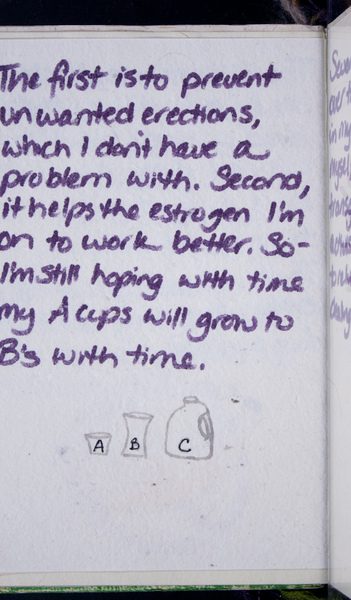 The first is to prevent
unwanted erections,
which I don't have a
problem with. Second,
it helps the estrogen I'm
on to work better. So-
I'm still hoping with time
my A cups will grow to
B's with time.
A B C